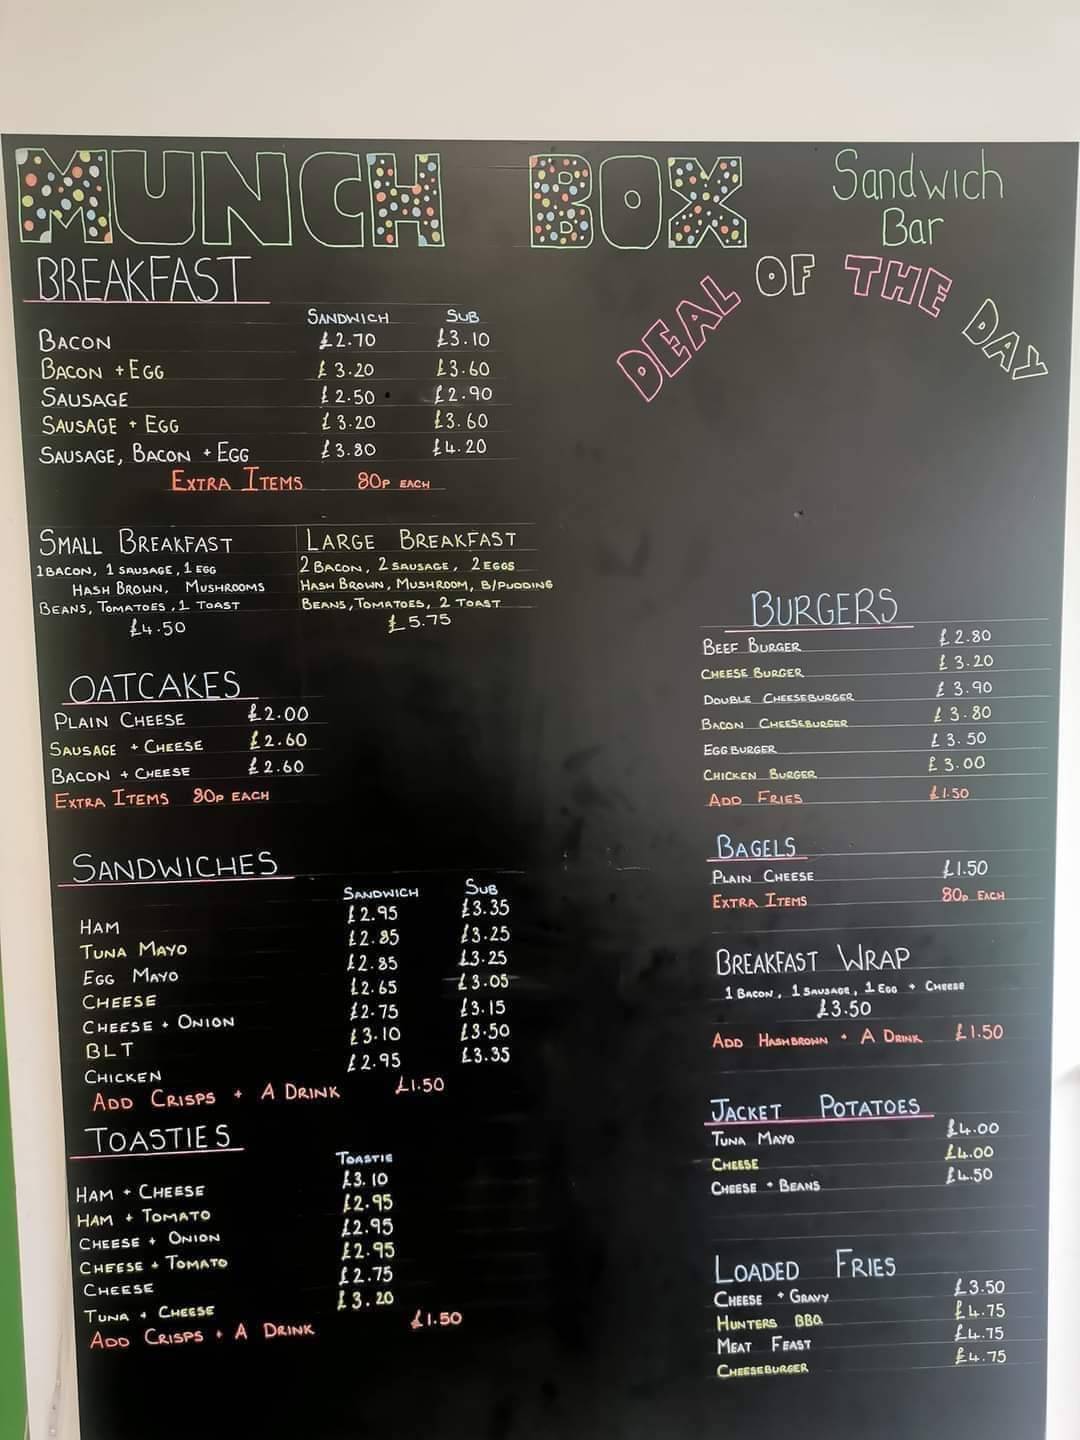 MUNCH BOX
Sandwich
Bar
DEAL OF THE DAY
BREAKFAST
SANDWICH SUB
BACON £2.70 £3.10
BACON + EGG £3.20 £3.60
SAUSAGE £2.50 £2.90
SAUSAGE + EGG £3.20 £3.60
SAUSAGE, BACON + EGG £3.80 £4.20
EXTRA ITEMS 80P EACH
SMALL BREAKFAST
1 BACON, 1 SAUSAGE, 1 EGG
HASH BROWN, MUSHROOMS
BEANS, TOMATOES, 1 TOAST
£4.50
LARGE BREAKFAST
2 BACON, 2 SAUSAGE, 2 EGGS
HASH BROWN, MUSHROOM, B/PUDDING
BEANS, TOMATOES, 2 TOAST
£5.75
OATCAKES
PLAIN CHEESE £2.00
SAUSAGE + CHEESE £2.60
BACON + CHEESE £2.60
EXTRA ITEMS 80P EACH
SANDWICHES
SANDWICH SUB
HAM £2.95 £3.35
TUNA MAYO £2.85 £3.25
EGG MAYO £2.85 £3.25
CHEESE £2.65 £3.05
CHEESE + ONION £2.75 £3.15
BLT £3.10 £3.50
CHICKEN £2.95 £3.35
ADD CRISPS + A DRINK £1.50
TOASTIES
TOASTIE
HAM + CHEESE £3.10
HAM + TOMATO £2.95
CHEESE + ONION £2.95
CHEESE + TOMATO £2.95
CHEESE £2.75
TUNA + CHEESE £3.20
ADD CRISPS + A DRINK £1.50
BURGERS
BEEF BURGER £2.80
CHEESE BURGER £3.20
DOUBLE CHEESEBURGER £3.90
BACON CHEESEBURGER £3.80
EGG BURGER £3.50
CHICKEN BURGER £3.00
ADD FRIES £1.50
BAGELS
PLAIN CHEESE £1.50
EXTRA ITEMS 80P EACH
BREAKFAST WRAP
1 BACON, 1 SAUSAGE, 1 EGG + CHEESE
£3.50
ADD HASHBROWN + A DRINK £1.50
JACKET POTATOES
TUNA MAYO £4.00
CHEESE £4.00
CHEESE + BEANS £4.50
LOADED FRIES
CHEESE + GRAVY £3.50
HUNTERS BBQ £4.75
MEAT FEAST £4.75
CHEESEBURGER £4.75